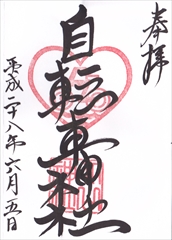 奉拝
自転車神社
平成二十八年六月五日